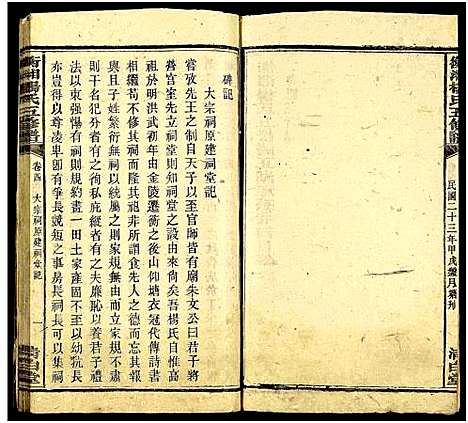 衡湘楊氏五修譜
民國二十三年甲戌歲月續刊
清白堂
碑記
大宗祠原建祠堂記
嘗攷先王之制自天子以至於官師皆有廟朱文公曰君子將
營宮室先立祠堂則知祠堂之設由來尚矣吾楊氏自惟高
祖於明洪武初由金陵遷衡之後山仰塘衣冠代傳詩書
繼美苟不修其祠何非所謂食先人之德而忘其報
且夫子姓繁衍無祠以統之則家規不立家規不肅
則干名犯分者有之徇私庇縱者有之夫廉恥以養君子刑
法以束小人有祠則規約畫一田土家產固不至以幼抗長
亦豈得以尊凌卑卽有爭長競短之事房長族長可以集祠
衡湘楊氏五修譜
卷四
大宗祠原建祠堂記
一
清白堂